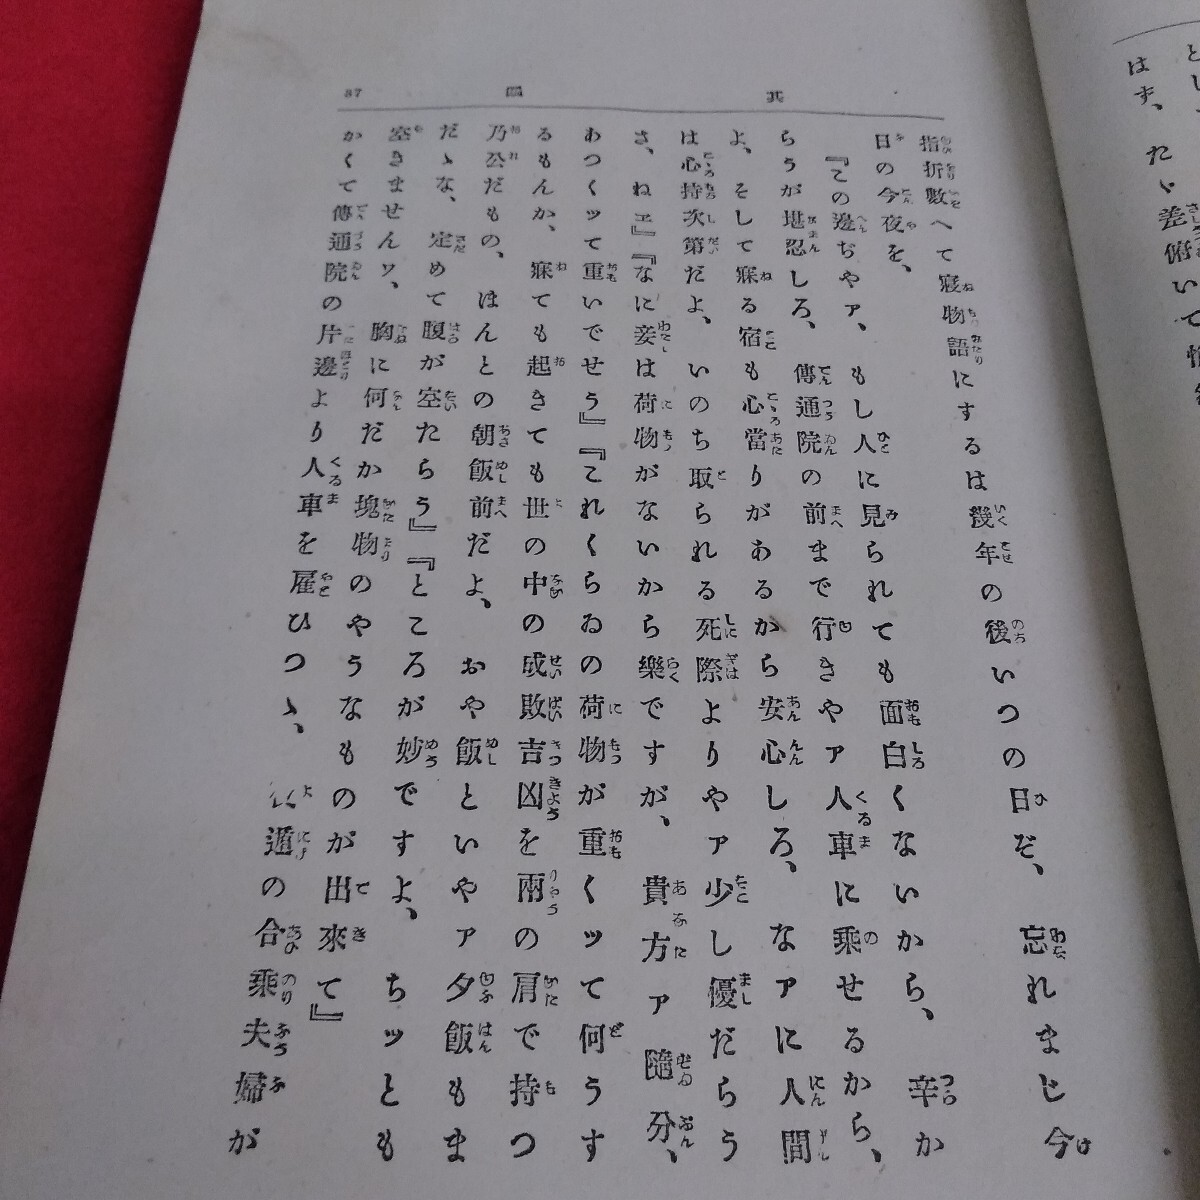 とし
はず、たゝ差俯いて
87
其
四
指折數へて寢物語にするは幾年の後いつの日ぞ、忘れまじ今
日の今夜を、
『この邊ぢやァ、もし人に見られても面白くないから、辛か
らうが堪忍しろ、傳通院の前まで行きやァ人車に乘せるから、
よ、そして寐る宿も心當りがあるから安心しろ、なァに人間
は心持次第だよ、いのち取られる死際よりやァ少し優だらう
さ、ねヱ』『なに妾は荷物がないから樂ですが、貴方ァ隨分、
あつくッて重いでせう』『これくらゐの荷物が重くッて何うす
るもんか、寐ても起きても世の中の成敗吉凶を兩の肩で持つ
乃公だもの、はんとの朝飯前だよ、おや飯といやァ夕飯もま
だゝな、定めて腹が空たらう』『ところが妙ですよ、ちッとも
空きませんワ、胸に何だか塊物のやうなものが出來て』
かくて傳通院の片邊より人車を雇ひつゝ、遁の合乘夫婦が